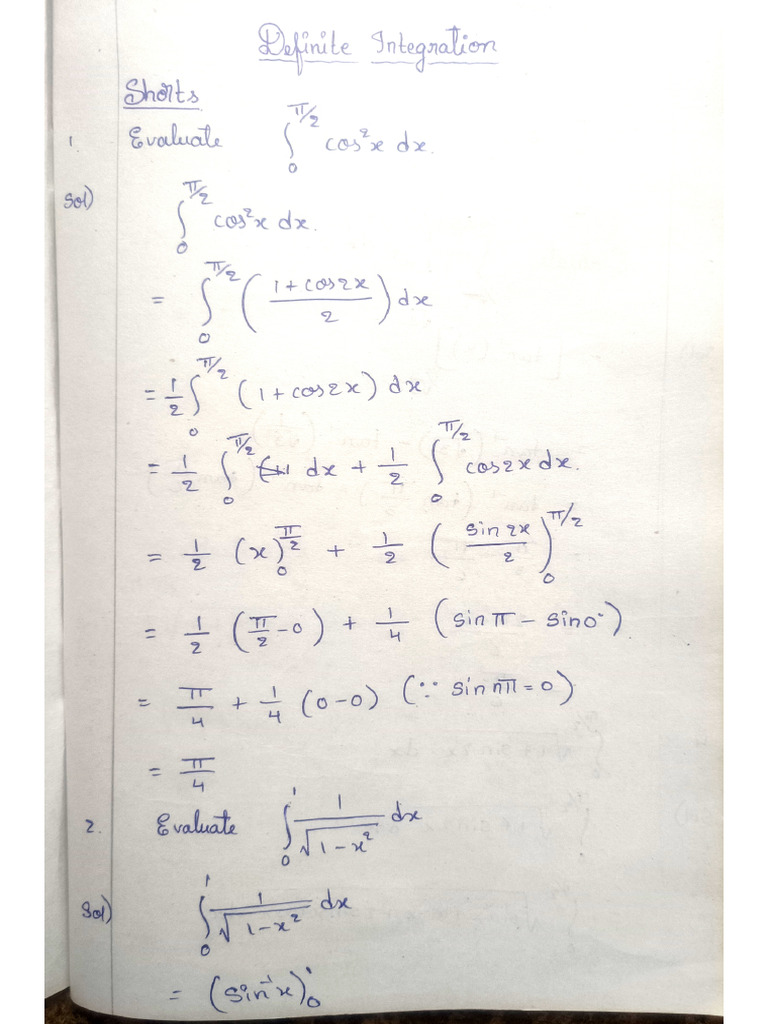 Definite Integration
Shorts
1. Evaluate ∫₀^{π/2} cos²x dx.
Sol) ∫₀^{π/2} cos²x dx.
= ∫₀^{π/2} ((1 + cos2x)/2) dx
= 1/2 ∫₀^{π/2} (1 + cos2x) dx
= 1/2 ∫₀^{π/2} dx + 1/2 ∫₀^{π/2} cos2x dx.
= 1/2 (x)₀^{π/2} + 1/2 (sin 2x/2)₀^{π/2}
= 1/2 (π/2 - 0) + 1/4 (sin π - sin 0°)
= π/4 + 1/4 (0 - 0) (∵ sin nπ = 0)
= π/4
2. Evaluate ∫₀¹ 1/√(1 - x²) dx
Sol) ∫₀¹ 1/√(1 - x²) dx
= (sin⁻¹x)₀¹